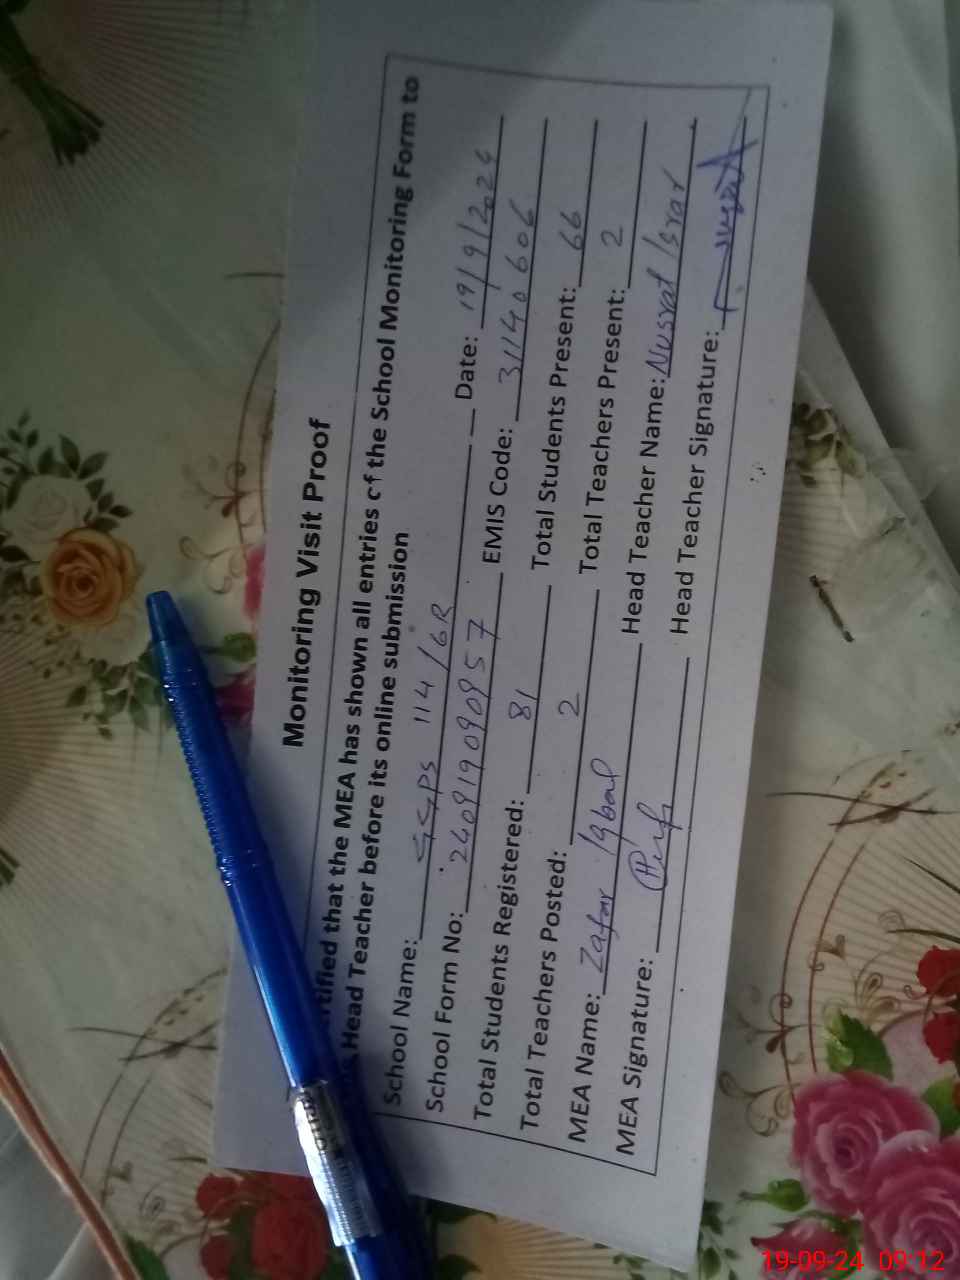 Monitoring Visit Proof
rtified that the MEA has shown all entries of the School Monitoring Form to
Head Teacher before its online submission
School Name: GGPS 114/6R Date: 19/9/2024
School Form No: 240919090957 EMIS Code: 31140606
Total Students Registered: 81 Total Students Present: 66
Total Teachers Posted: 2 Total Teachers Present: 2
MEA Name: Zafar Iqbal Head Teacher Name: Nusrat Israr
MEA Signature: Head Teacher Signature:
19-09-24 09:12